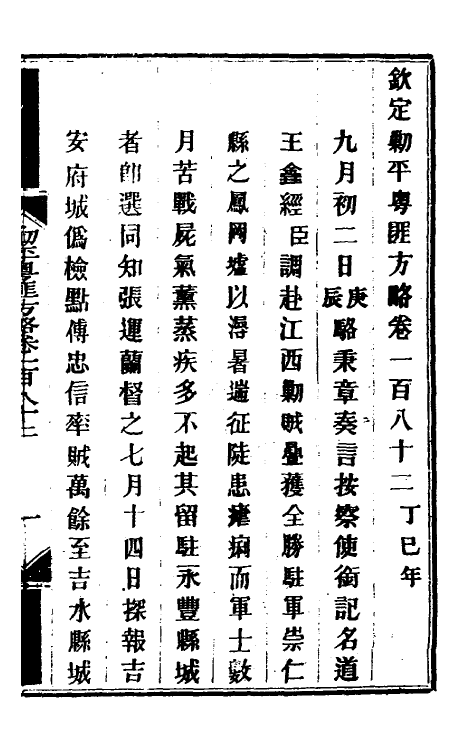 欽定勦平粵匪方略卷一百八十二 丁巳年
九月初二日庚辰駱秉章奏言按察使銜記名道
王鑫經臣調赴江西勦賊疊獲全勝駐軍崇仁
縣之鳳岡墟以溽暑遄征陡患瘧痢而軍士數
月苦戰屍氣薰蒸疾多不起其留駐永豐縣城
者卽選同知張運蘭督之七月十四日探報吉
安府城僞檢點傅忠信率賊萬餘至吉水縣城
勦平粵匪方略卷一百八十二
一